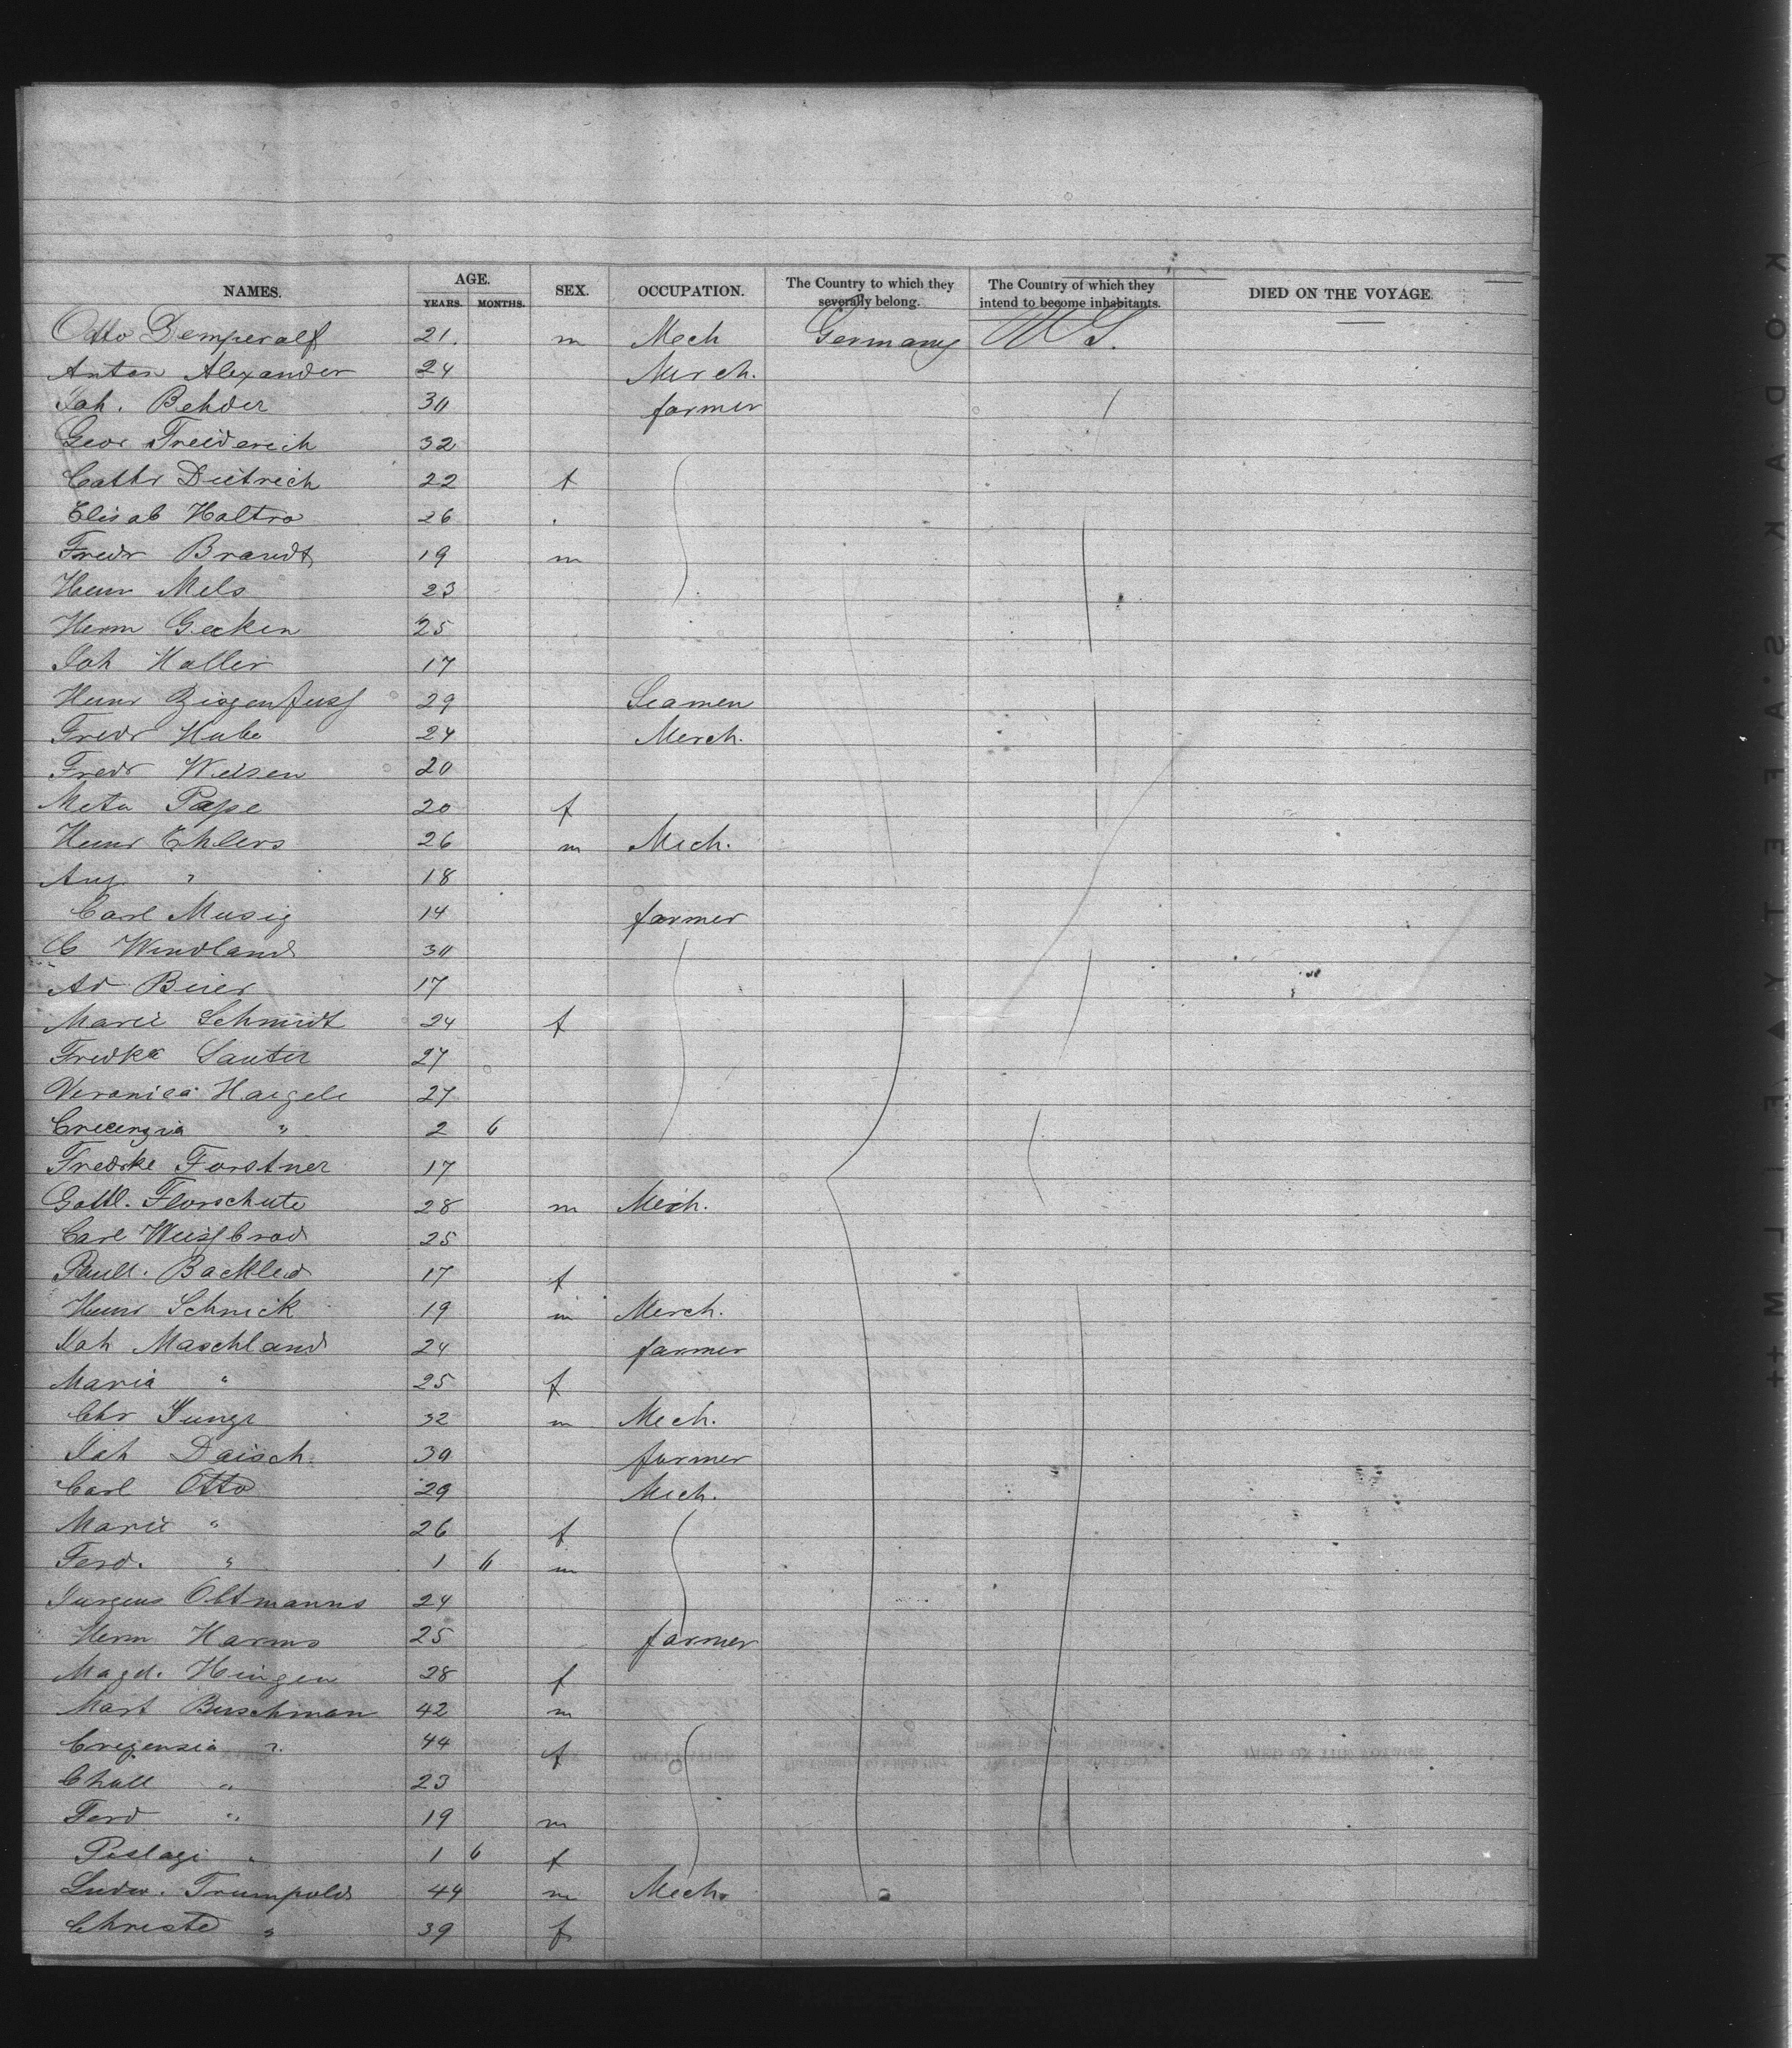 NAMES. AGE. YEARS. MONTHS. SEX. OCCUPATION. The Country to which they severally belong. The Country of which they intend to become inhabitants. DIED ON THE VOYAGE
Otto 21. m Mech Germany US. —
Anton Alexander 24 Merch.
Joh. Behder 30 farmer
Geor Freiderich 32
Cathr Dietrich 22 f
Elisab Holtro 26
Fredr Brandt 19 m
Heinr Mels 23
Herm Gecken 25
Joh Haller 17
Heinr Ziegenfuss 29 Seamen
Fredr Hube 24 Merch.
Fredr Weisen 20
Meta Pape 20 f
Heinr Ehlers 26 m Mech.
Aug " 18
Carl Musig 14 farmer
C Windland 30
Ad Beier 17
Marie Schmidt 24 f
Fredka Sauter 27
Veronica Haegele 27
" 2 6
Fredke Forstner 17
Gottl. Florschute 28 m Merch.
Carl Weissbrod 25
Paull. 17 f
Heinr Schnick 19 m Merch.
Joh Maschland 24 farmer
Maria " 25 f
Chr Junge 32 m Mech.
Joh Daisch 30 farmer
Carl Otto 29 Mech.
Marie " 26 f
Ferd. " 1 6 m
Jurgens Oltmanns 24
Herm Harms 25 farmer
Magd. Hingen 28 f
Mart Buschman 42 m
Crezensia " 44 f
" 23
Ferd " 19 m
" 1 6 f
Ludw. Trumpold 44 m Mech.
Christe " 39 f
KODAK S.A.FETY FILM